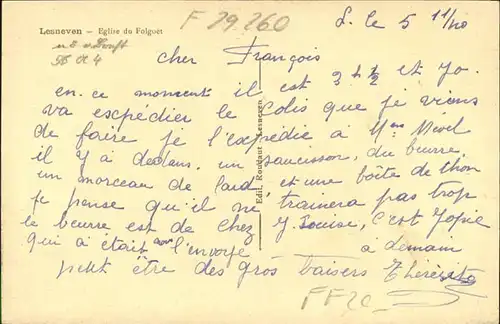 Lesneven - Eglise du Folgoët
F 29260
L. le 5 11/40
56 et 4
cher François
en ce moment il est 3 h ½ et Jo
va expédier le colis que je viens
de faire je l'expédie a Mme
il y a dedans un saucisson, du beurre,
un morceau de lard, et une boîte de thon
je pense qu'il ne trainera pas trop
le beurre est de chez Louise, c'est
qui a était l'envoyé a demain
petit être des gros baisers Thérèse
FF20
Edit. Roudaut - Lesneven